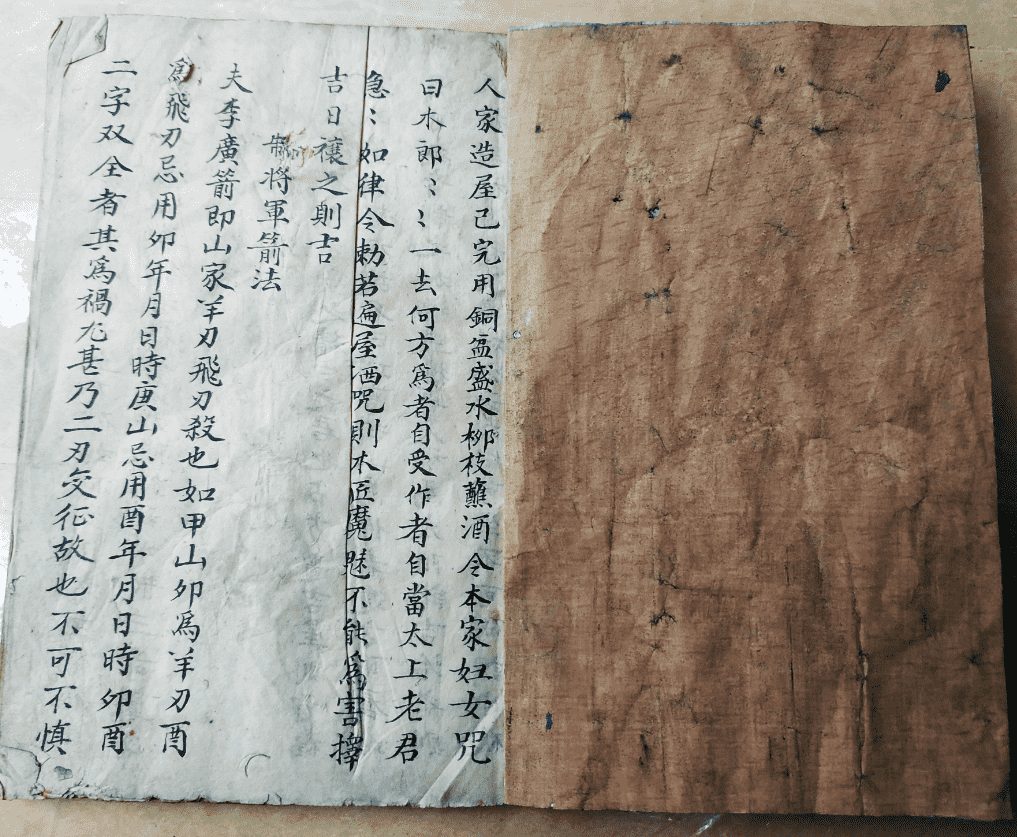 人家造屋已完用銅盆盛水柳枝蘸洒令本家妇女咒
曰木郎〻〻一去何方爲者自受作者自當太上老君
急〻如律令勅若遍屋洒咒則木匠魔魅不能爲害擇
吉日禳之則吉
將軍箭法
夫李廣箭即山家羊刃飛刃殺也如甲山卯爲羊刃酉
爲飛刃忌用卯年月日時庚山忌用酉年月日時卯酉
二字双全者其爲禍尤甚乃二刃交征故也不可不慎